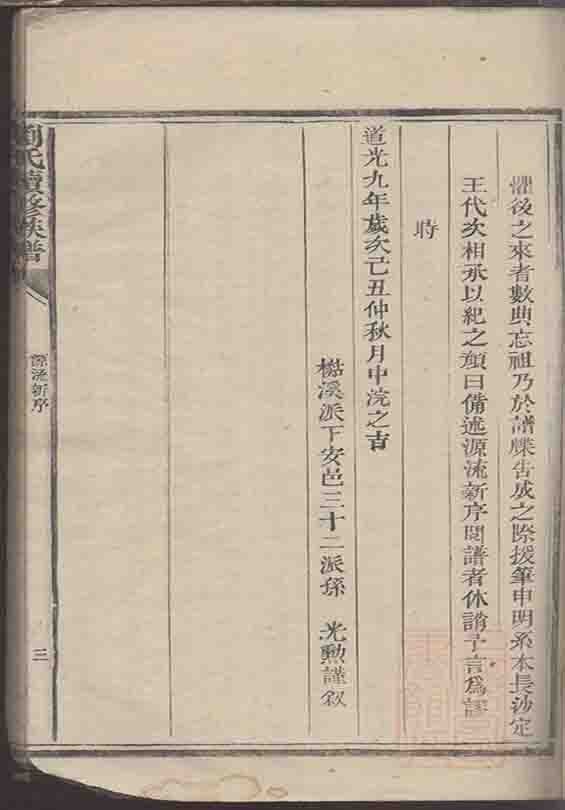 懼後之來者數典忘祖乃於譜牒告成之際援筆申明系本長沙定
王代次相承以紀之顏曰備述源流新序閱譜者休誚予言為謬
時
道光九年歲次己丑仲秋月中浣之吉
楷溪派下安邑三十二派孫 光勲謹叙
劉氏續修族譜
源流新序
三